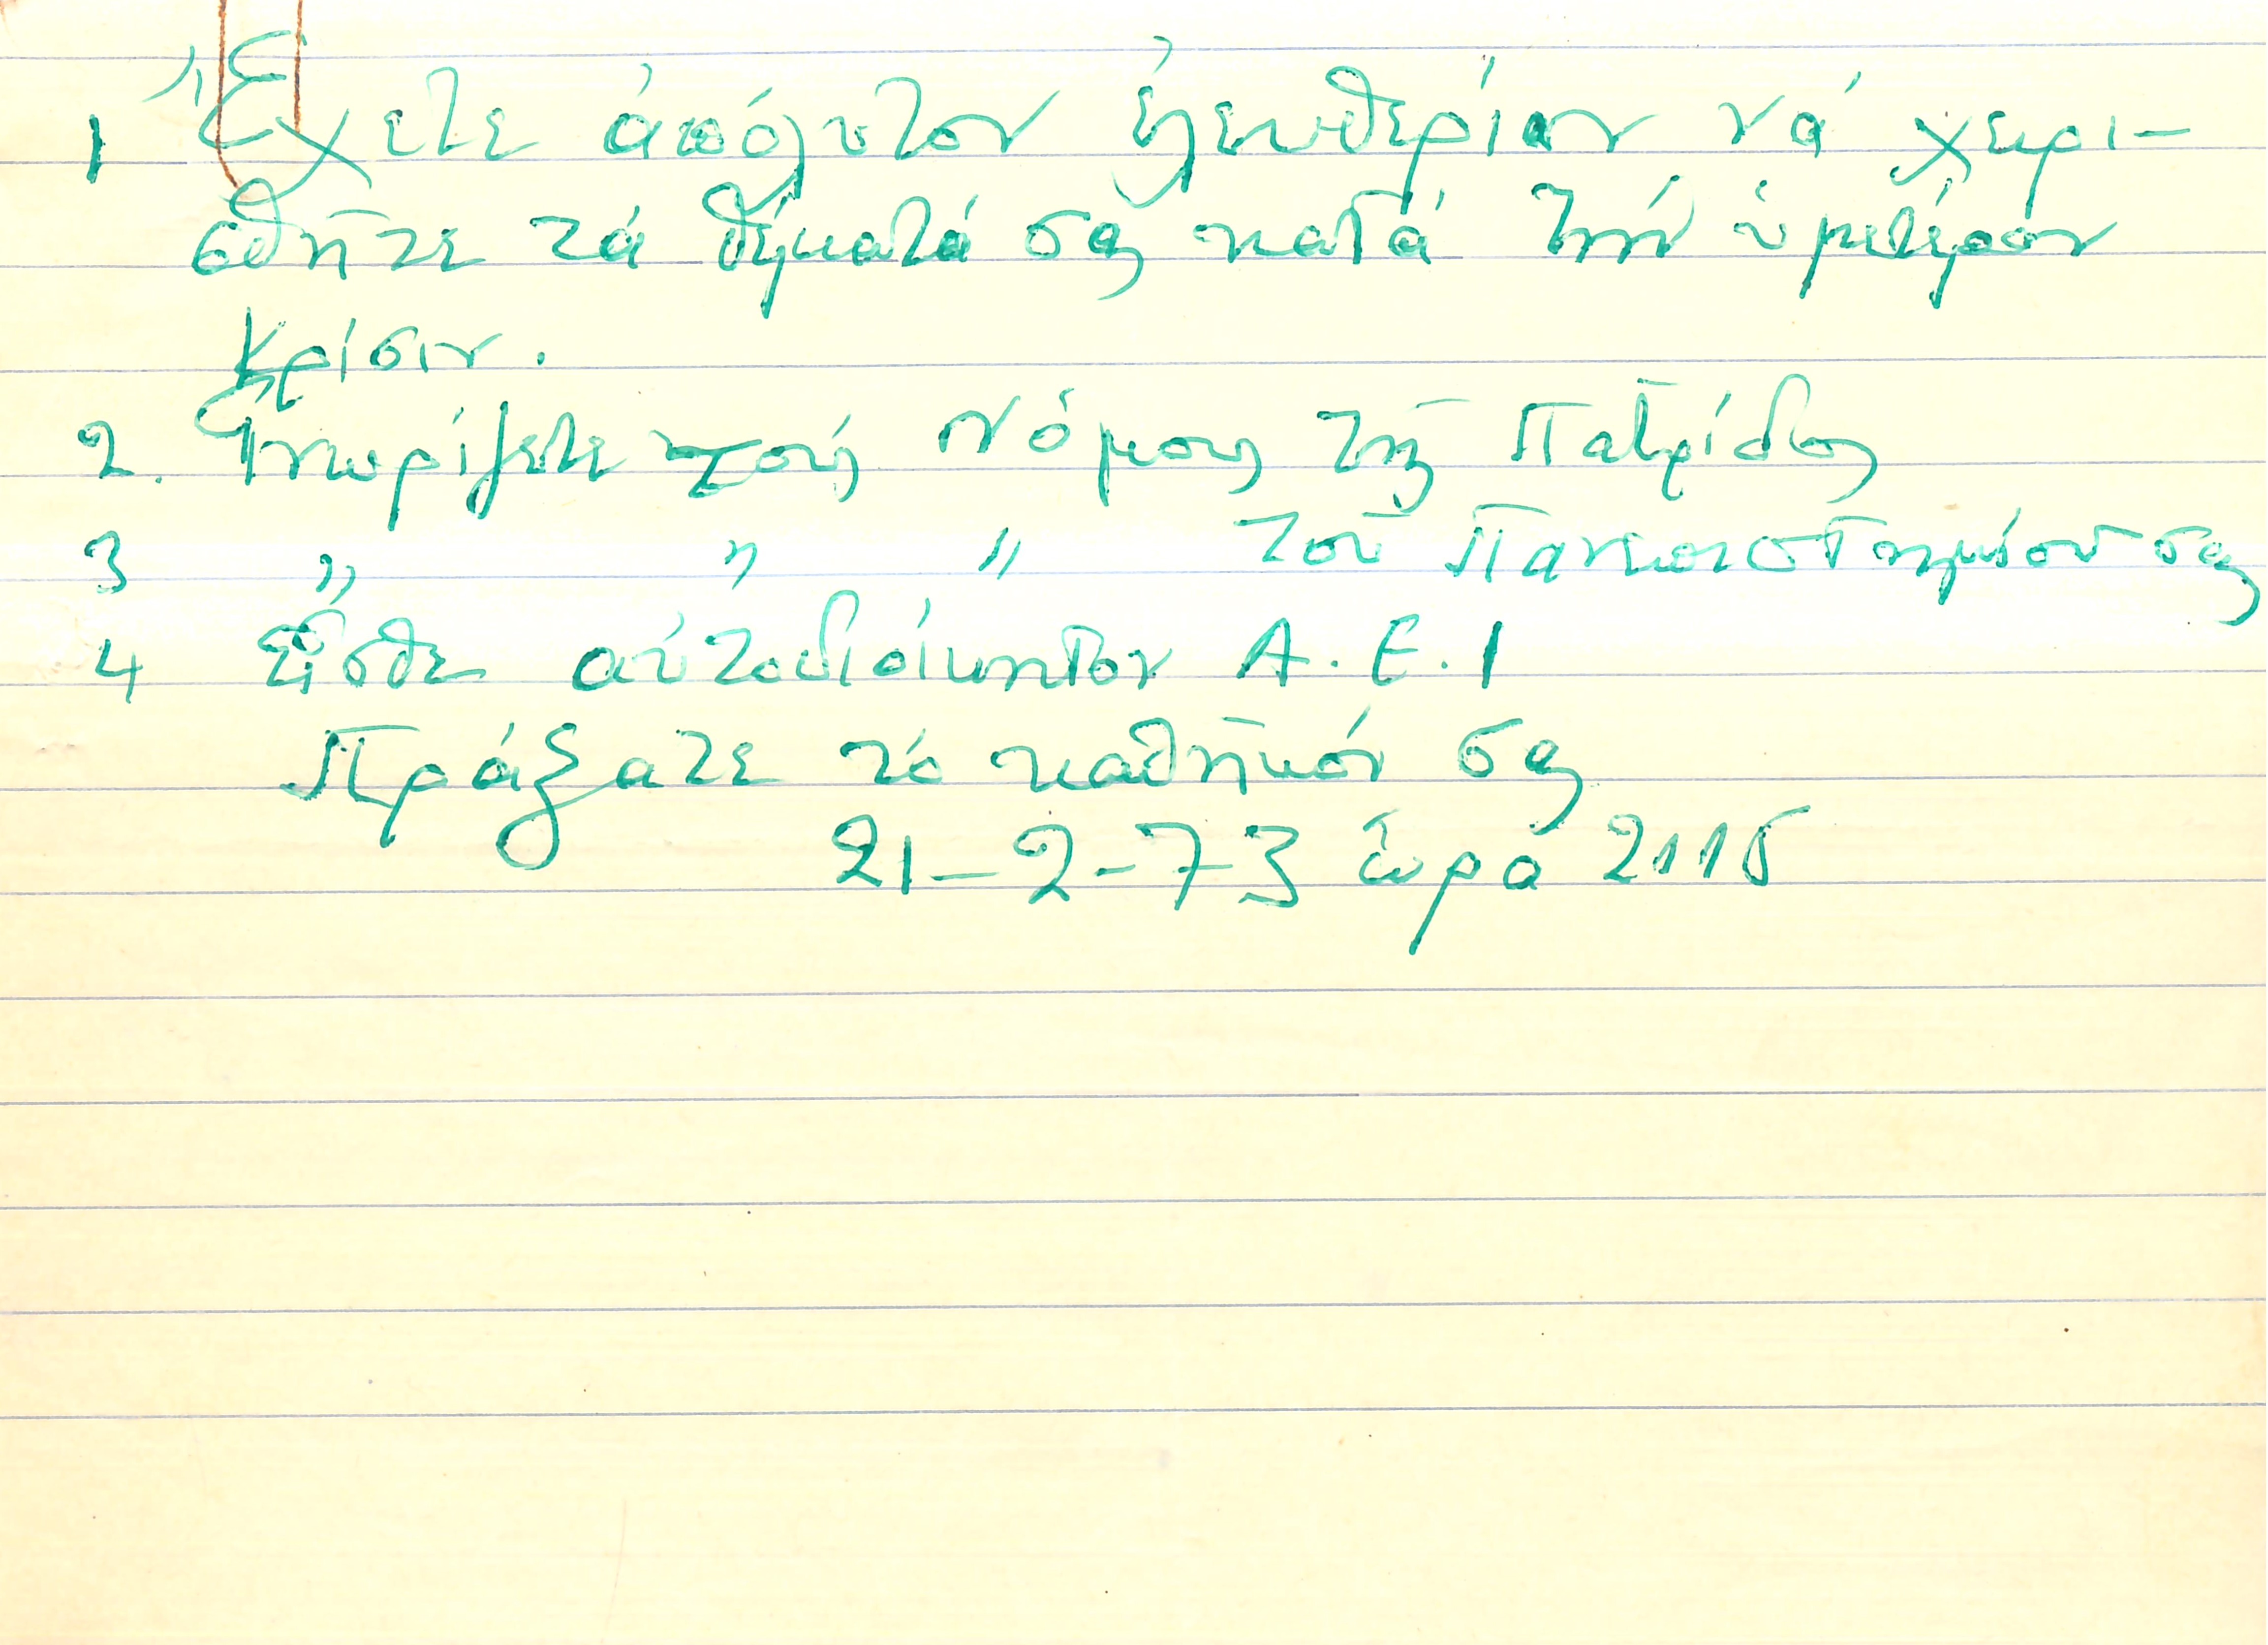 1 Ἔχετε ἀπόλυτον ἐλευθερίαν νά χειρι-
σθῆτε τά θέματά σας κατά τήν ὑμετέραν
κρίσιν.
2. Γνωρίζετε τούς Νόμους τῆς Πατρίδος
3 " " " τοῦ Πανεπιστημίου σας
4 Εἶσθε αὐτοδιοίκητον Α.Ε.Ι
Πράξατε τό καθῆκόν σας
21-2-73 ὥρα 2115